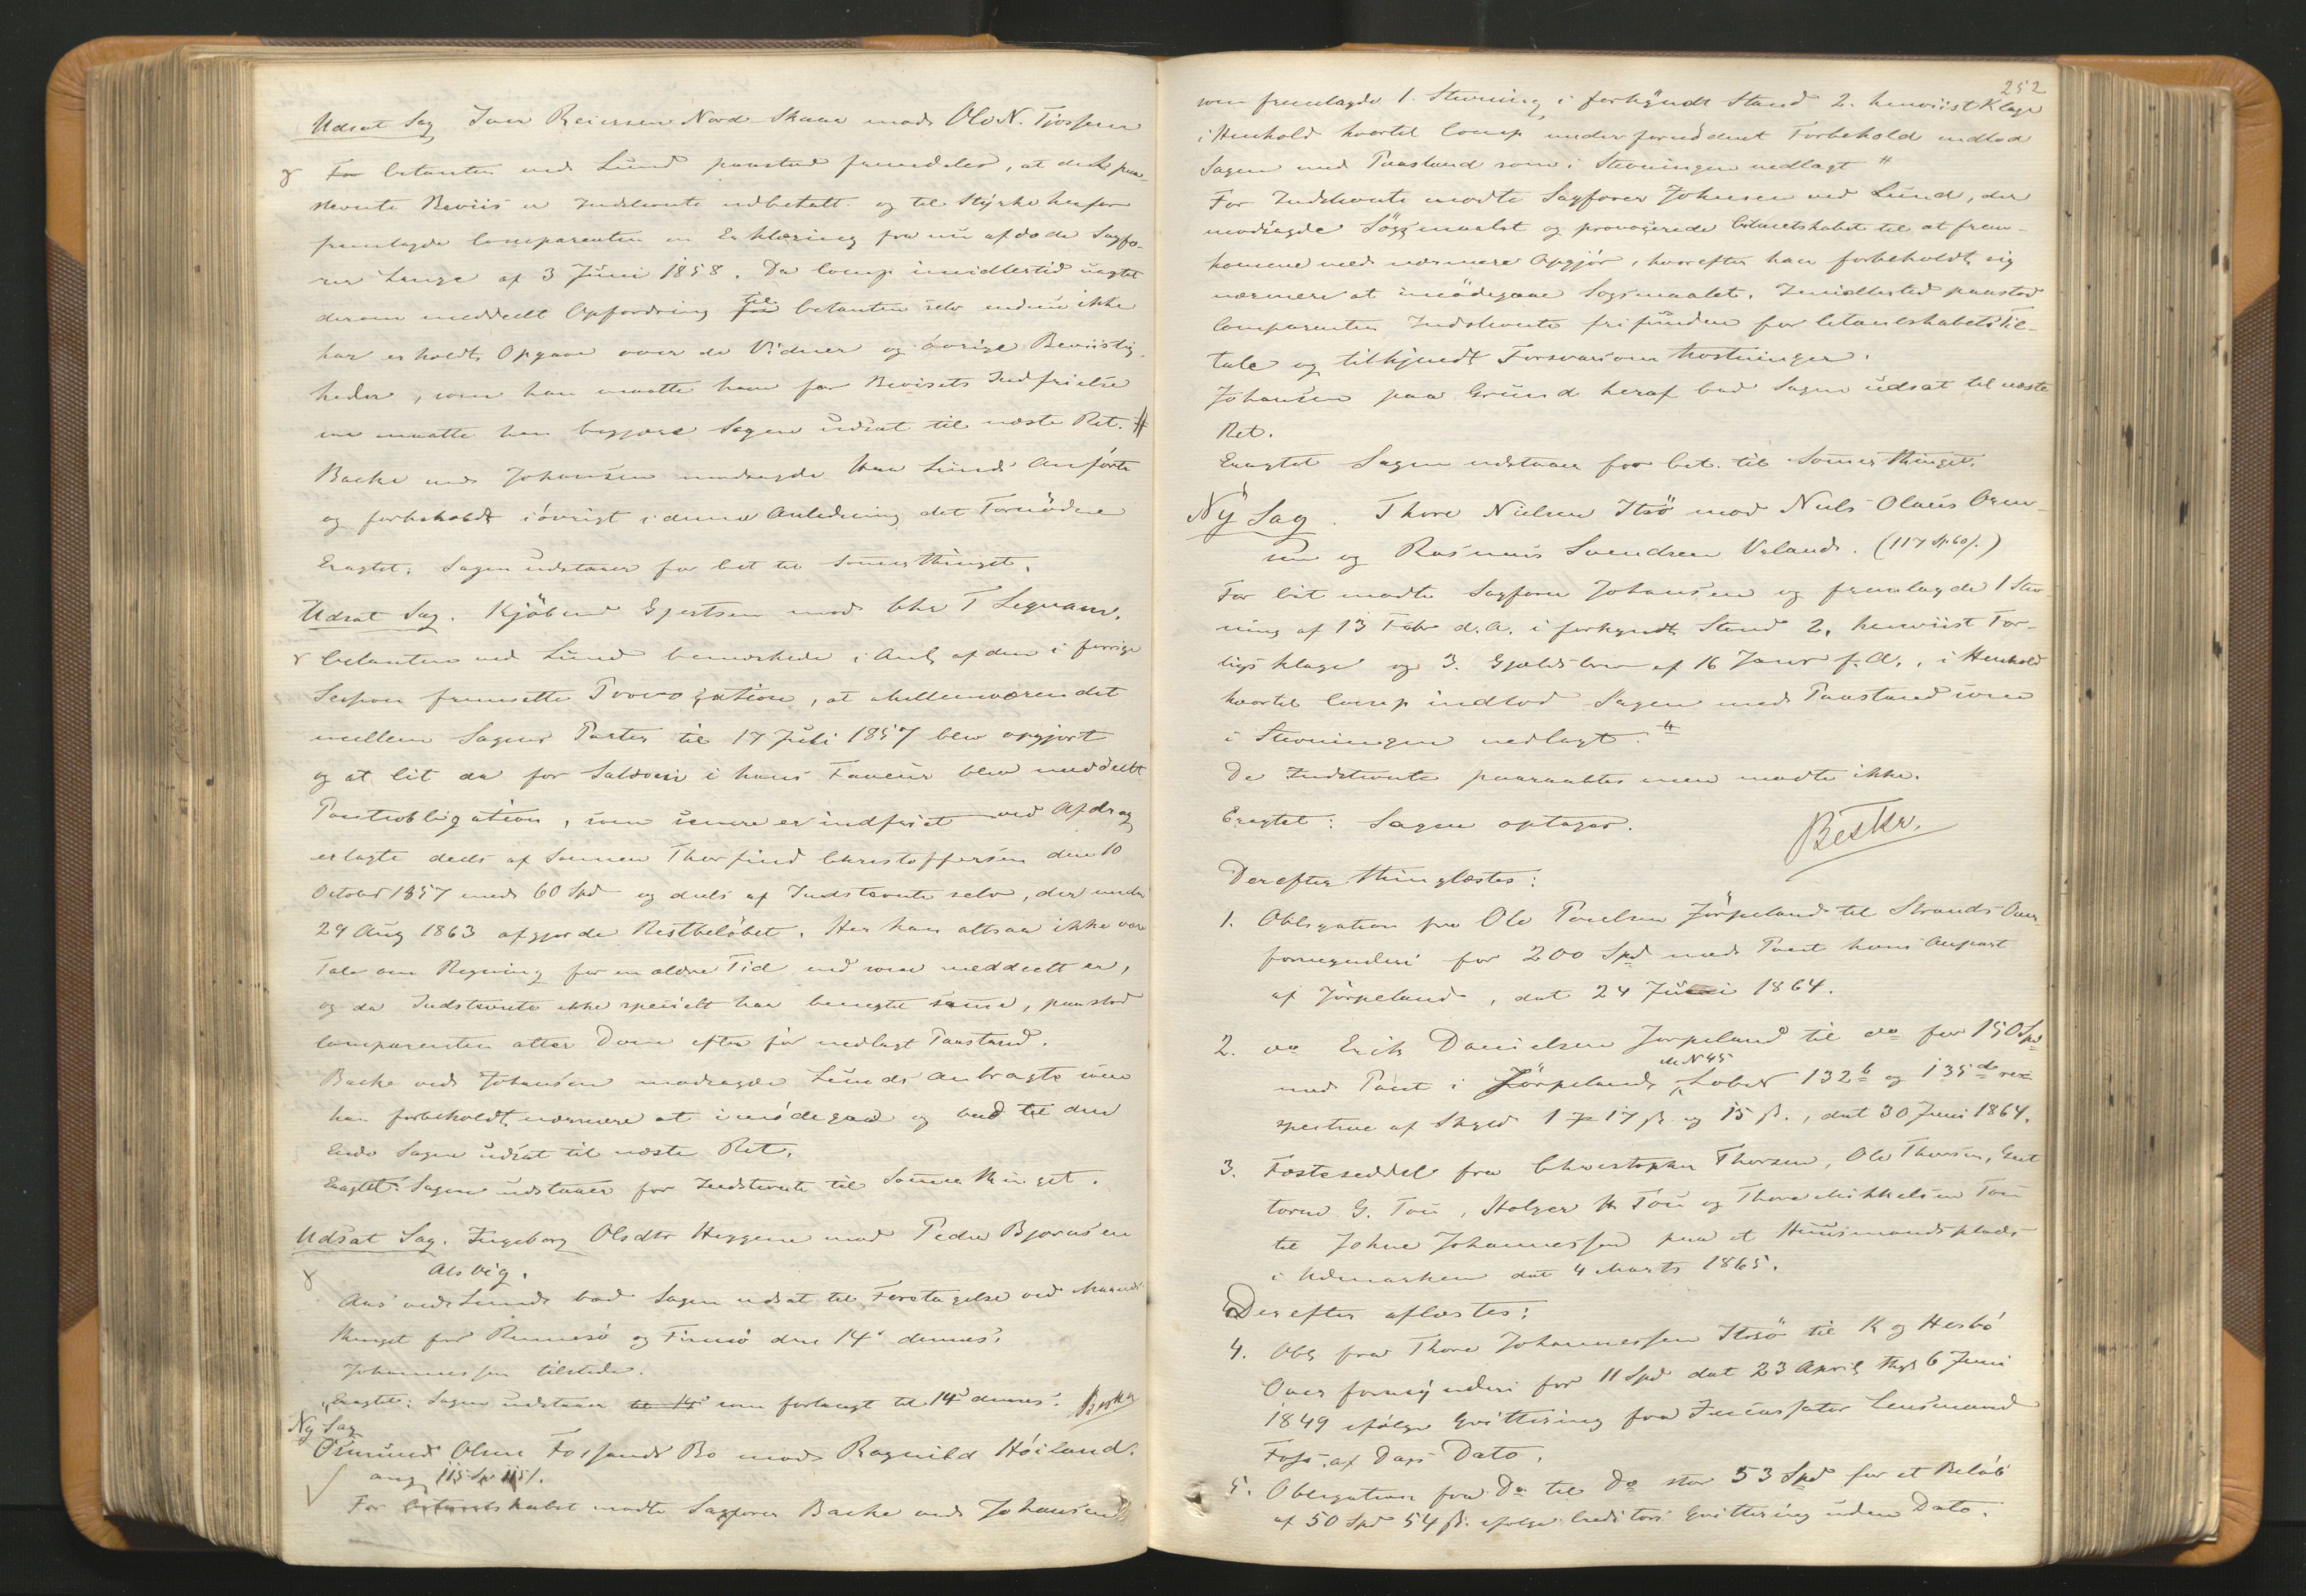 Udsat Sag Iver Reiersen Nord-Skaar mod Ole N. Tjossem
For Citanten mød Lund paastod fremdeles, at dets paa-
stevnte Beviis er Indstevnte udbetalt og til Styrke herfor
fremlagde Comparenten en Erklæring fra nu afdøde Sagfø-
rer Lange af 3 Juni 1858. Da Comp. imidlertid uagtet
derom meddeelt Opfordring til Citanten selv endnu ikke
har erholdt Opgave over de Vidner og øvrige Beviislig-
heder, som han maatte have for Bevisets Indfrielse
saa maatte han begjære Sagen udsat til næste Ret. #
Backe ved Johansen modsagde Hrr Lunds Anførte
og forbeholdt iøvrigt i denne Anledning det Fornødne
Eragtet: Sagen udstaaer for Cit til Sommerthinget.
Udsat Sag. Kjøbmd Gjertsen mod Chr T Leqvam.
Citanten ved Lund bemærkede i Anl. af den i forrige
Session fremsatte Provocation, at Mellemværendet
mellem Sagens Parter til 17 Juli 1857 blev opgjort
og at Cit da for Saldoen i hans Faveur blev meddeelt
Pantobligation, som senere er indfriet ved Afdrag
erlagte deels af Sønnen Thorfind Christoffersen den 10
October 1857 med 60 Spd og deels af Indstevnte selv, der under
29 Aug 1863 afgjorde Restbeløbet. Her kan altsaa ikke være
Tale om Regning for en ældre Tid end som meddeelt er,
og da Indstevnte ikke specielt har benegtet samme, paastod
Comparenten atter Dom efter før nedlagt Paastand.
Backe ved Johansen modsagde Lunds Anbragte som
han forbeholdt nærmere at imødegaa og bad til den
Ende Sagen udsat til næste Ret.
Eragtet: Sagen udstaaer for Indstevnte til Sommerthinget.
Udsat Sag. Ingeborg Olsdtr Heggem mod Peder Bjørnsen
Alsvig.
Aas ved Lund bad Sagen udsat til Foretagelse ved Mands
thinget for Rennesø og Finnø den 14de dennes.
Johannessen tilstede.
Eragtet: Sagen udstaaer til 14 som forlangt til 14de dennes. Beskr
Ny Sag
Osmund Olsen Fossands Bo mod Ragnild Høiland.
ang 115 Sp 115/.
For Citantskabet mødte Sagfører Backe ved Johansen
252
som fremlagde 1. Stevning i forkyndt Stand 2. henviist Klage
i Henhold hvortil Comp. under fornødent Forbehold indlod
Sagen med Paastand som i Stevningen nedlagt #
For Indstevnte mødte Sagfører Johnsen ved Lund, der
modsagde Søgsmaalet og provocerede Citantskabet til at frem-
komme med nærmere Opgjør, hvorefter han forbeholdt sig
nærmere at imødegaae Søgsmaalet. Imidlertid paastod
Comparenten Indstevnte frifunden for Citantskabets Til-
tale og tilkjendt Forsvarsomkostninger.
Johansen paa Grund heraf bad Sagen udsat til næste
Ret.
Eragtet Sagen udstaaer for Cit. til Sommerthinget.
Ny Sag. Thore Nielsen Idsø mod Niels Olaus Orm-
sen og Rasmus Svendsen Valand. (117 Sp 60/.)
For Cit mødte Sagfører Johansen og fremlagde 1 Stev-
ning af 13 Febr d.A. i forkyndt Stand 2, henviist For-
ligsklage og 3. Gjeldsbrev af 16 Janr f.A., i Henhold
hvortil Comp indlod Sagen med Paastand som
i Stevningen nedlagt. #
De Indstevnte paaraabtes men mødte ikke.
Eragtet: Sagen optages.
Beskr.
Derefter thinglæstes:
1. Obligation fra Ole Poulsen Jørpeland til Strands Over-
formynderi for 200 Spd med Pant hans Anpart
af Jørpeland, dat 24 Juni 1864.
2. do Erik Danielsen Jørpeland til do for 150 Spd
med Pant i Jørpeland, M N 45 Løbe 132b og 135d re-
spective af Skyld 1 17 ß og 15 ß., dat 30 Juni 1864.
3. Fæsteseddel fra Christopher Thorsen, Ole Thorsen, Gut
torm G. Tou, Holger H Tou og Thore Mikkelsen Tou
til Johne Johannessen paa et Huusmandsplads
i Udmarken dat 4 Marts 1865.
Derefter aflæstes:
4. Obl fra Thore Johannessen Idsø til K og Hesbø
Over formynderi for 11 Spd dat 23 April thgl 6 Juni
1849 ifølge Qvittering fra Incassator Lensmand
Foss. af Dags Dato.
5. Obligation fra Do til Do stor 53 Spd for et Beløb
af 50 Spd 54 ß. ifølge Creditors Qvittering uden Dato.